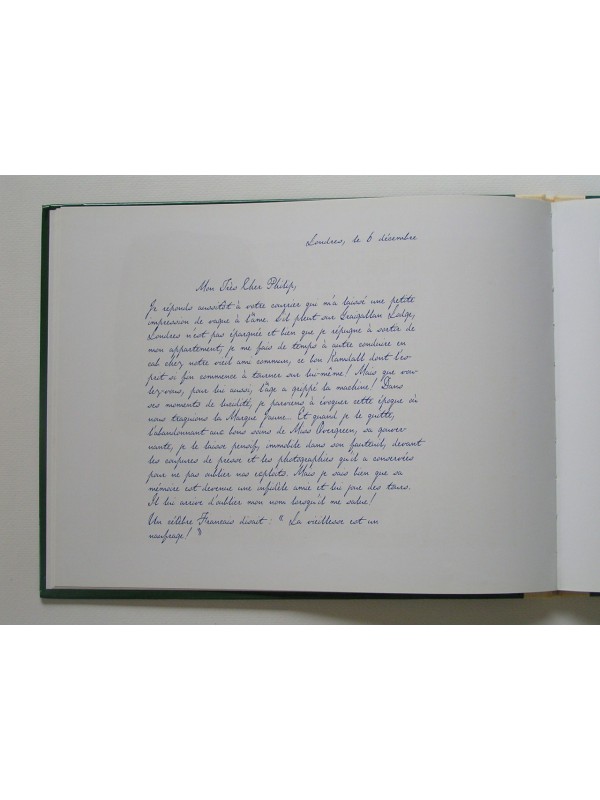 Londres, le 6 décembre
Mon Très Cher Philip,
Je réponds aussitôt à votre courrier qui m'a laissé une petite
impression de vague à l'âme. S'il pleut sur Graigallan Lodge,
Londres n'est pas épargnée et bien que je répugne à sortir de
mon appartement, je me fais de temps à autre conduire en
cab chez notre vieil ami commun, ce bon Kendall dont l'es-
prit si fin commence à tourner sur lui-même! Mais que vou-
lez-vous, pour lui aussi, l'âge a grippé la machine! Dans
ses moments de lucidité, je parviens à évoquer cette époque où
nous traquions la Marque Jaune. Et quand je le quitte,
l'abandonnant aux bons soins de Miss Overgreen, sa gouver-
nante, je le laisse pensif, immobile dans son fauteuil, devant
les coupures de presse et les photographies qu'il a conservées
pour ne pas oublier nos exploits. Mais je sais bien que sa
mémoire est devenue une infidèle amie et lui joue des tours.
Il lui arrive d'oublier mon nom lorsqu'il me salue!
Un célèbre Français disait : " La vieillesse est un
naufrage! "